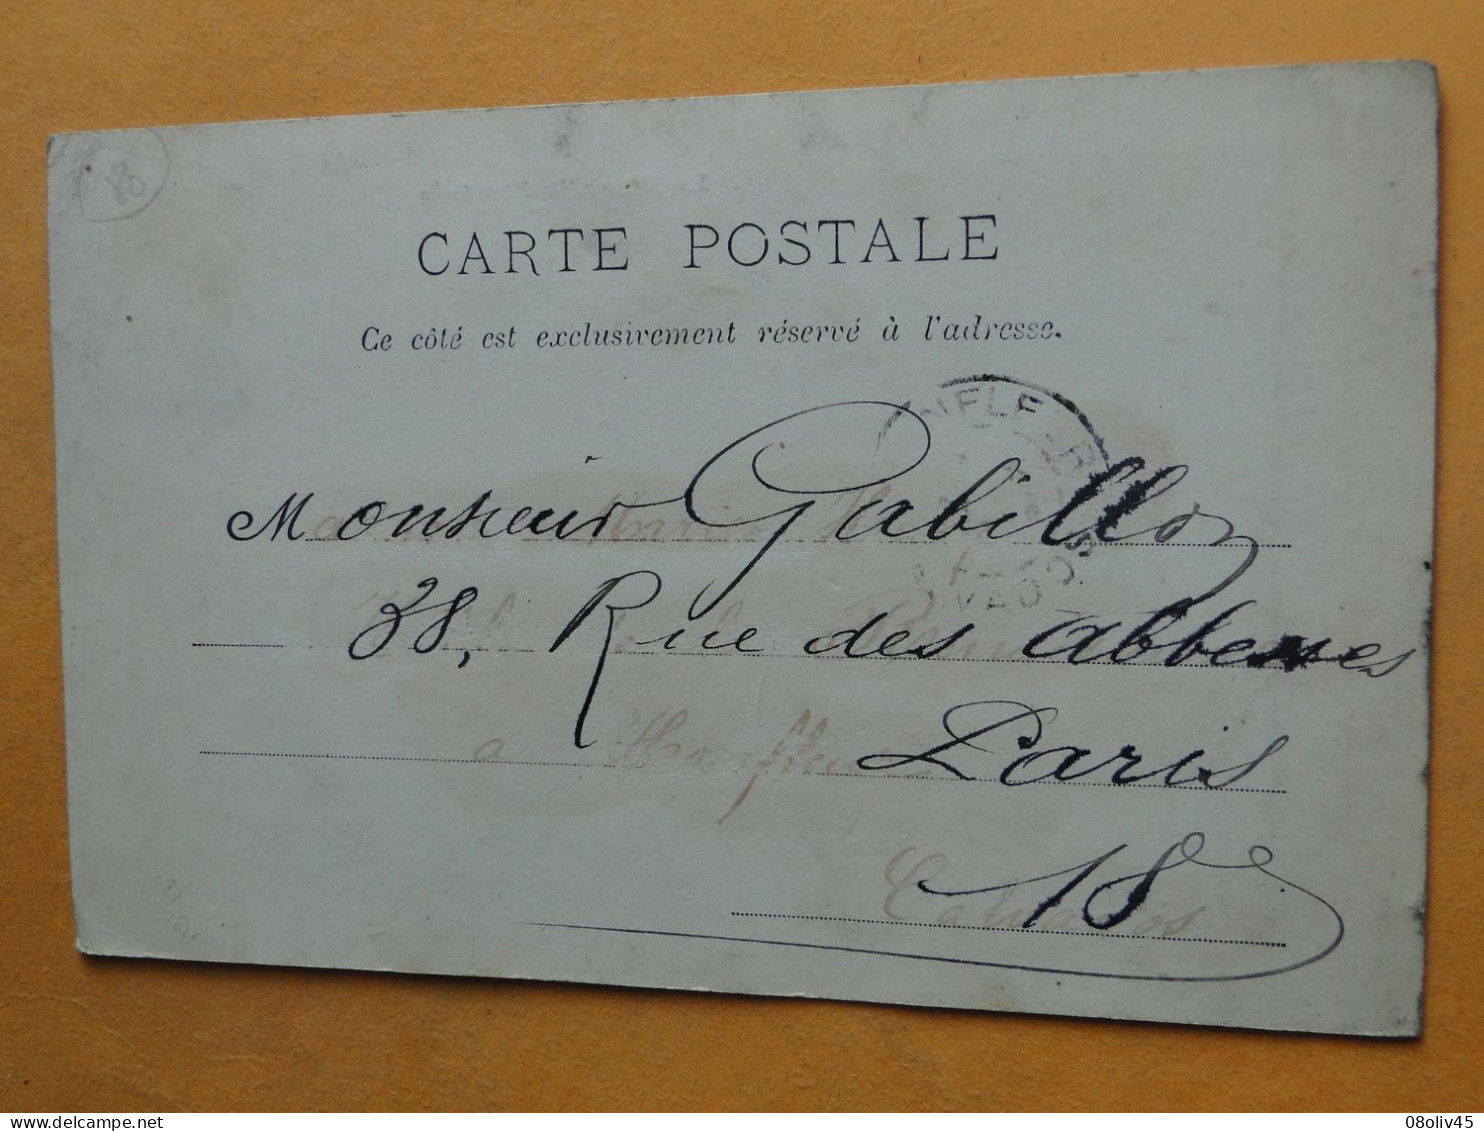 88
CARTE POSTALE
Ce côté est exclusivement réservé à l'adresse.
Monsieur Gabillon
38, Rue des Abbesses
Paris
18
a Honfleur
Calvados
08oliv45